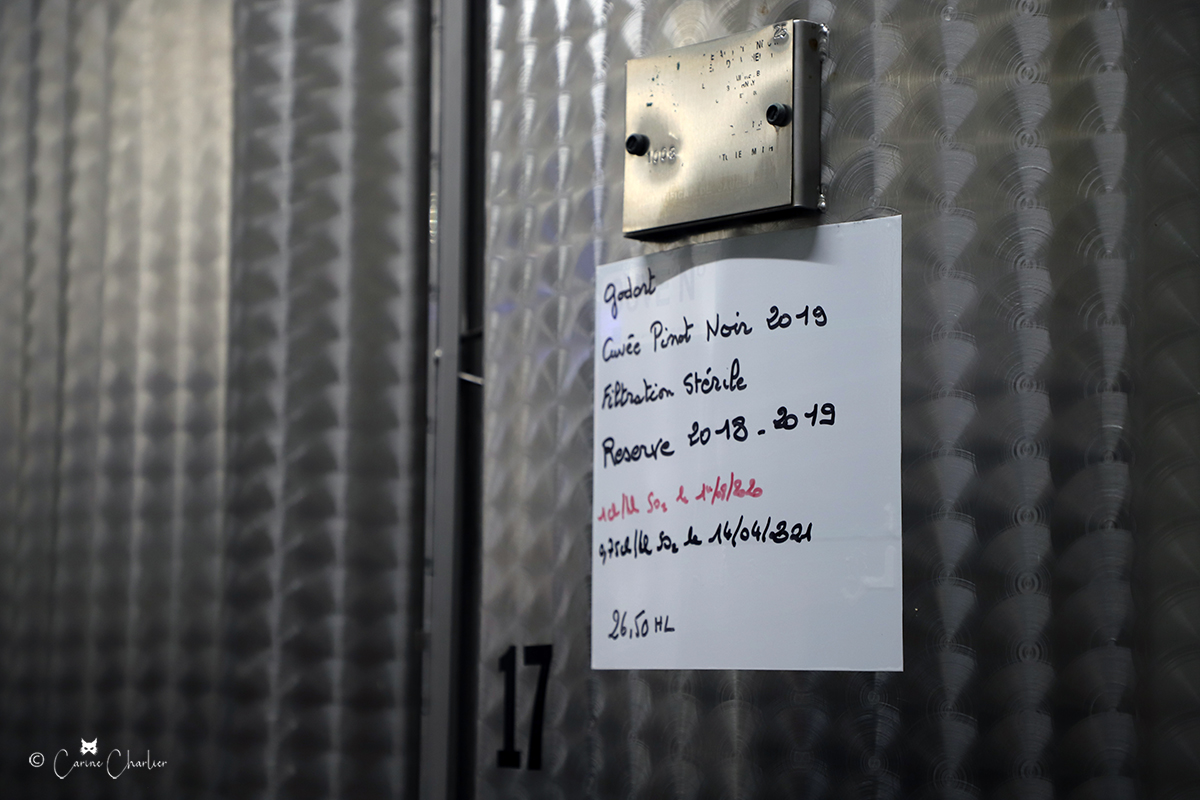 Godart
Cuvée Pinot Noir 2019
Filtration Stérile
Reserve 2018-2019
1cl/hl SO₂ le
0,75cl/hl SO₂ le 14/04/2021
26,50 HL
17
© Carine Charlier